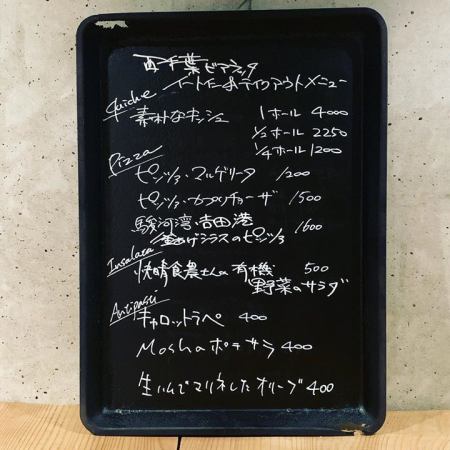 西千葉ピアラッタ
イートイン&テイクアウトメニュー
Quiche
素朴なキッシュ 1ホール 4000
1/2ホール 2250
1/4ホール 1200
Pizza
ピッツァ・マルゲリータ 1200
ピッツァ・カプリチョーザ 1500
駿河湾・吉田港
釜あげシラスのピッツァ 1600
Insalata
快晴食農士んの有機 500
野菜のサラダ
Antipasti
キャロットラペ 400
Moshaポテサラ 400
生ハムでマリネしたオリーブ 400